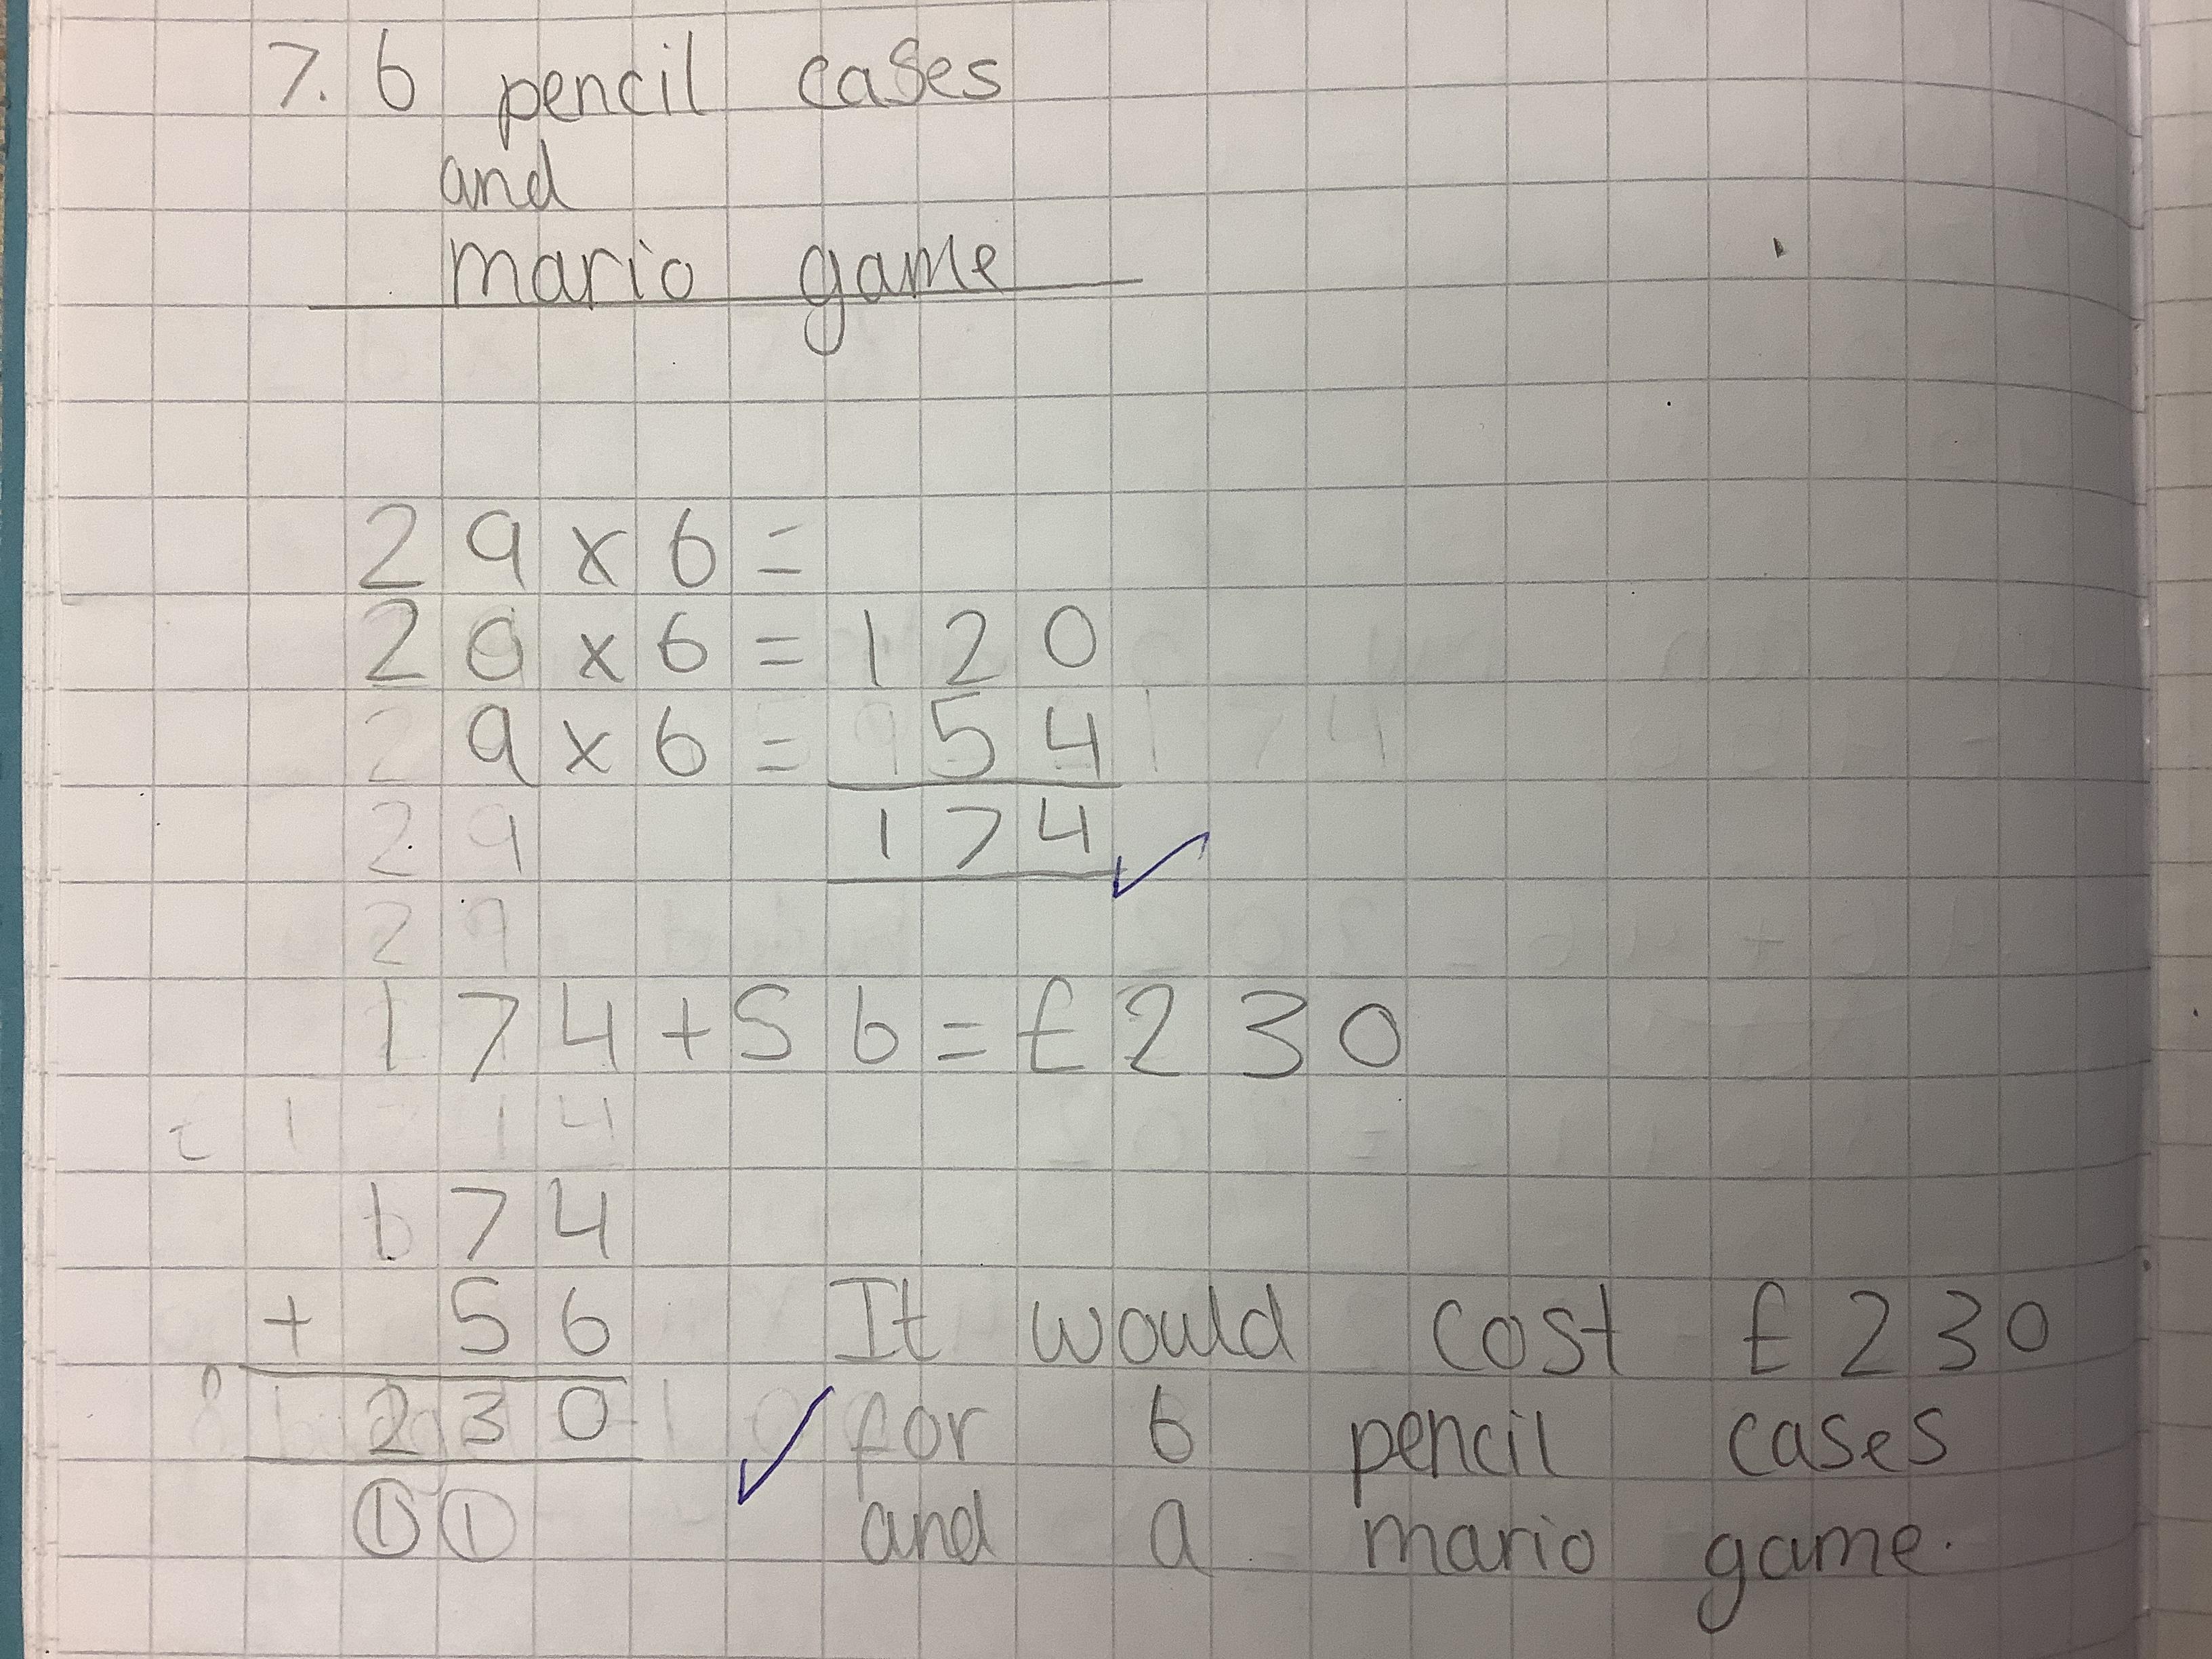 7. 6 pencil cases
and
mario game
29 x 6 =
20 x 6 = 120
9 x 6 = 54
29 174
29
174 + 56 = £230
174
+ 56
230
1 1
It would cost £230
for 6 pencil cases
and a mario game.